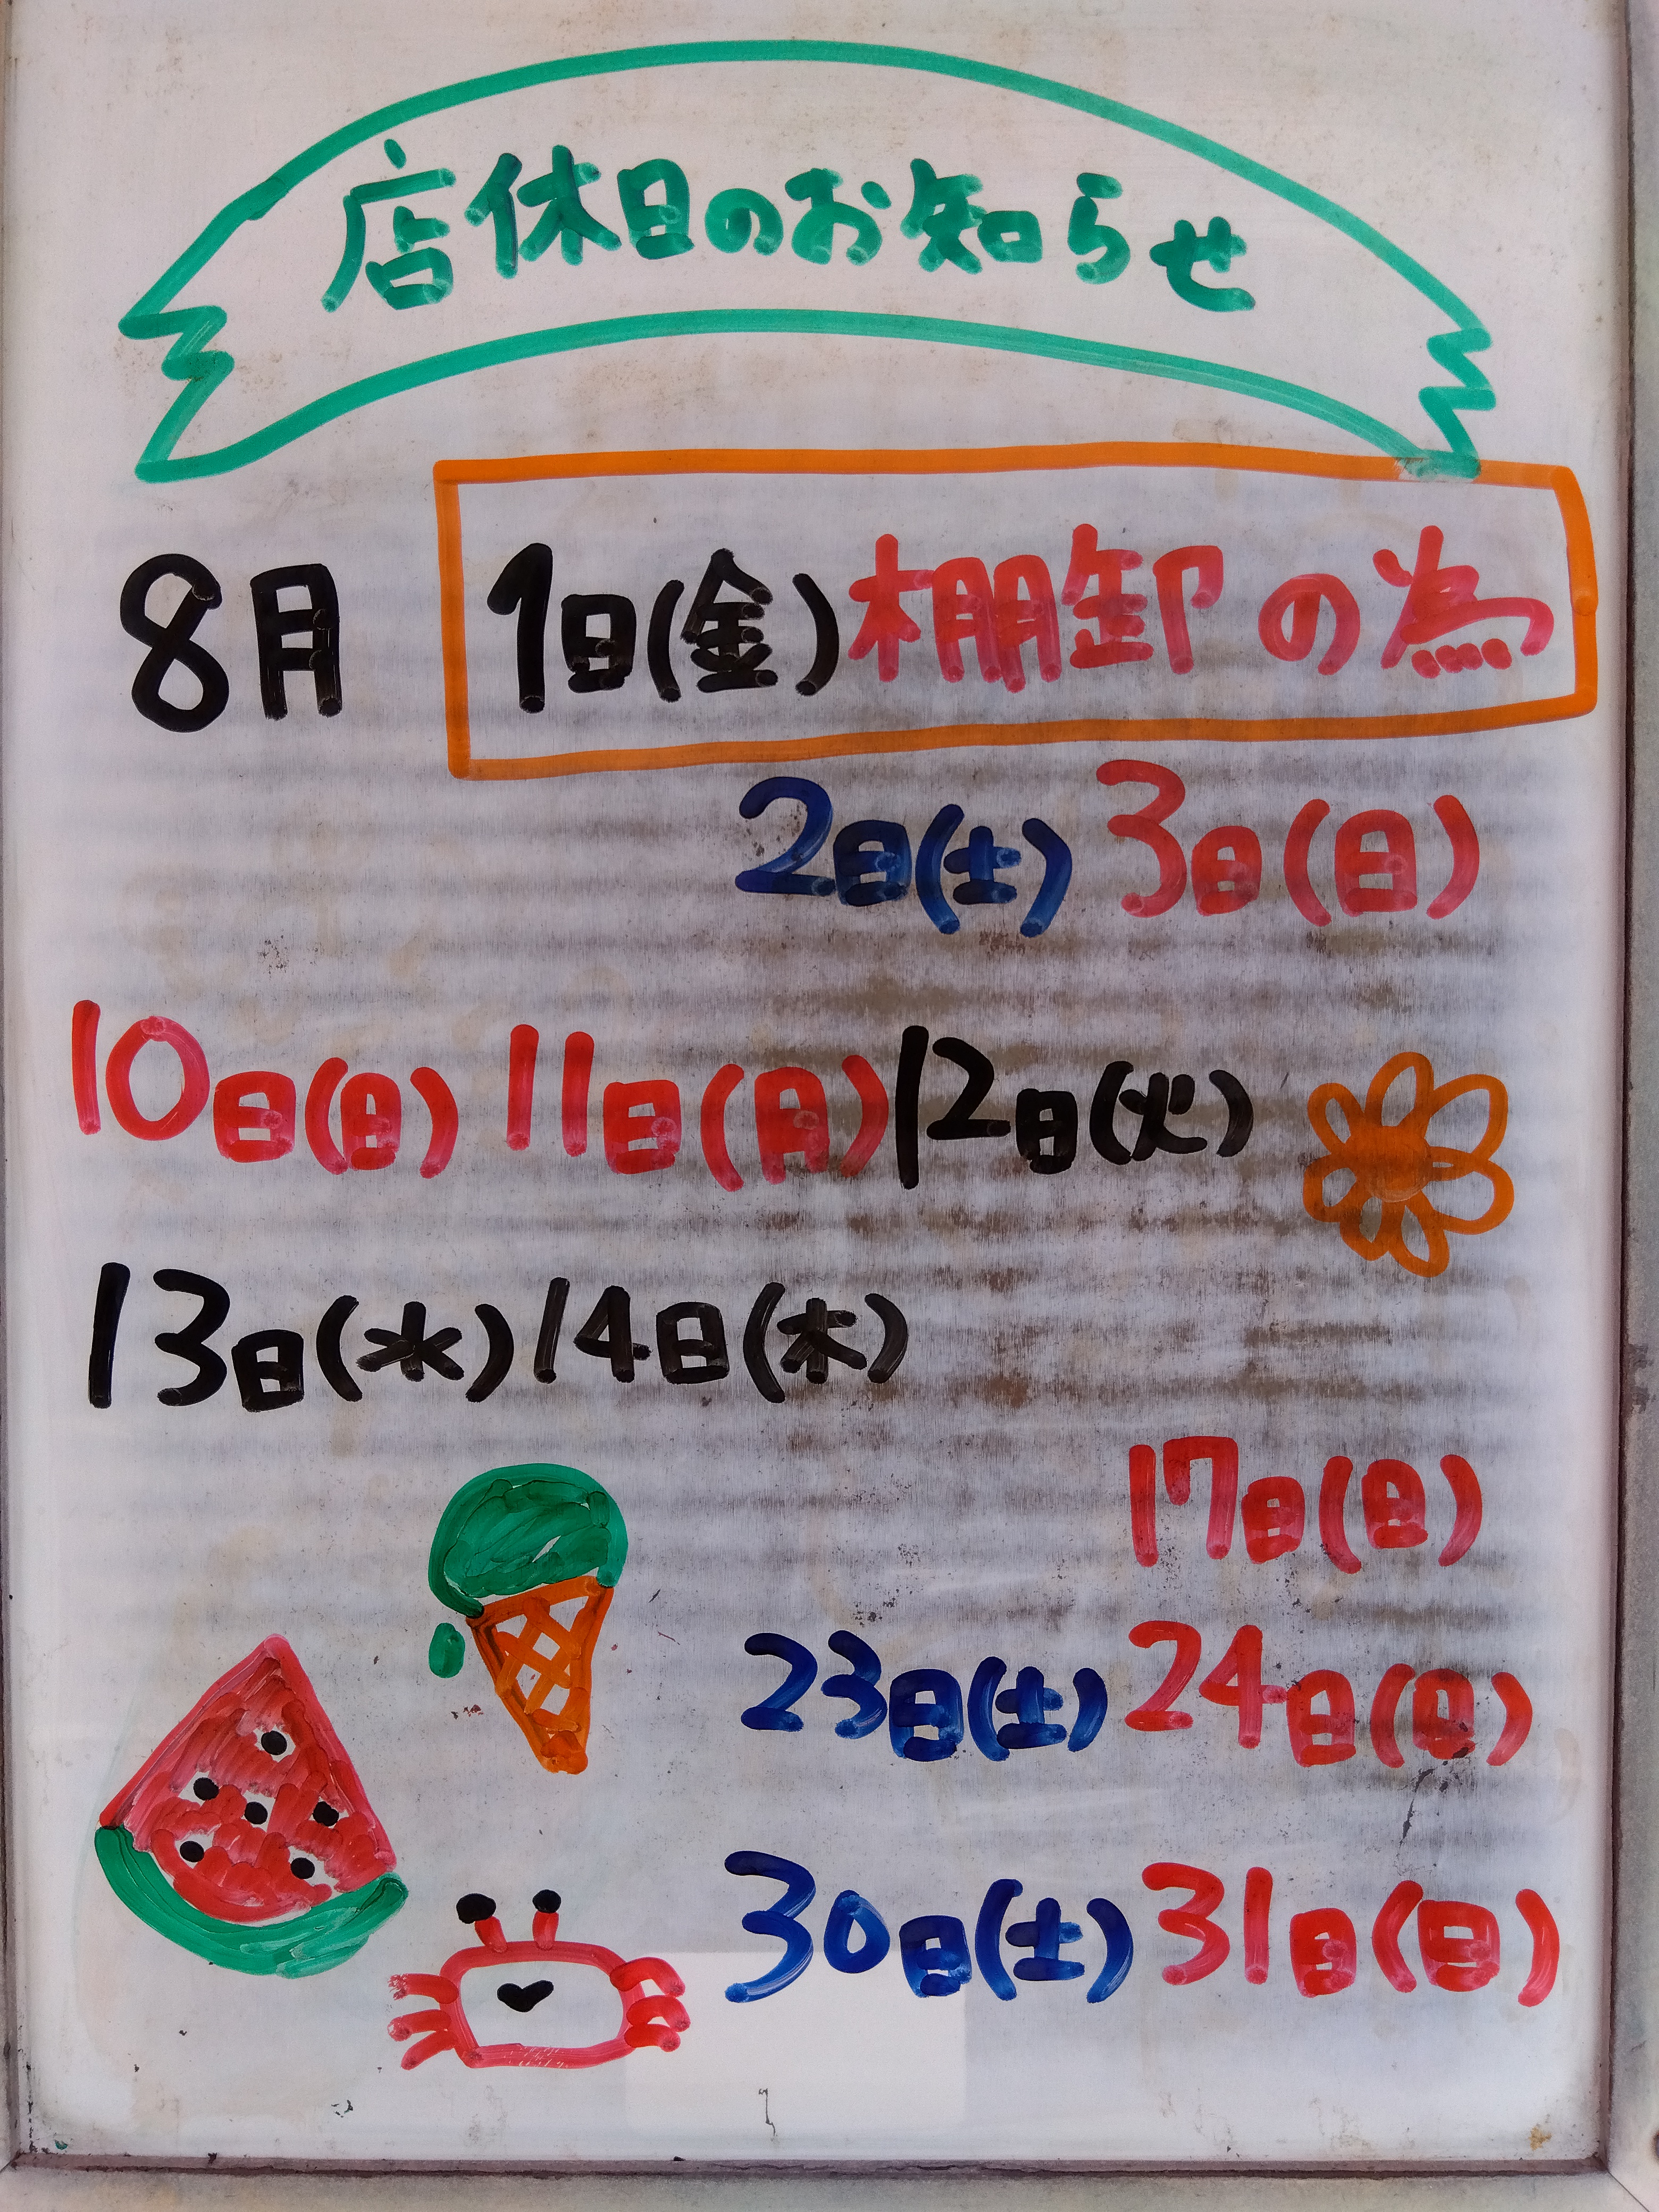 店休日のお知らせ
8月 1日(金)棚卸の為
2日(土) 3日(日)
10日(日) 11日(月) 12日(火)
13日(水) 14日(木)
17日(日)
23日(土) 24日(日)
30日(土) 31日(日)